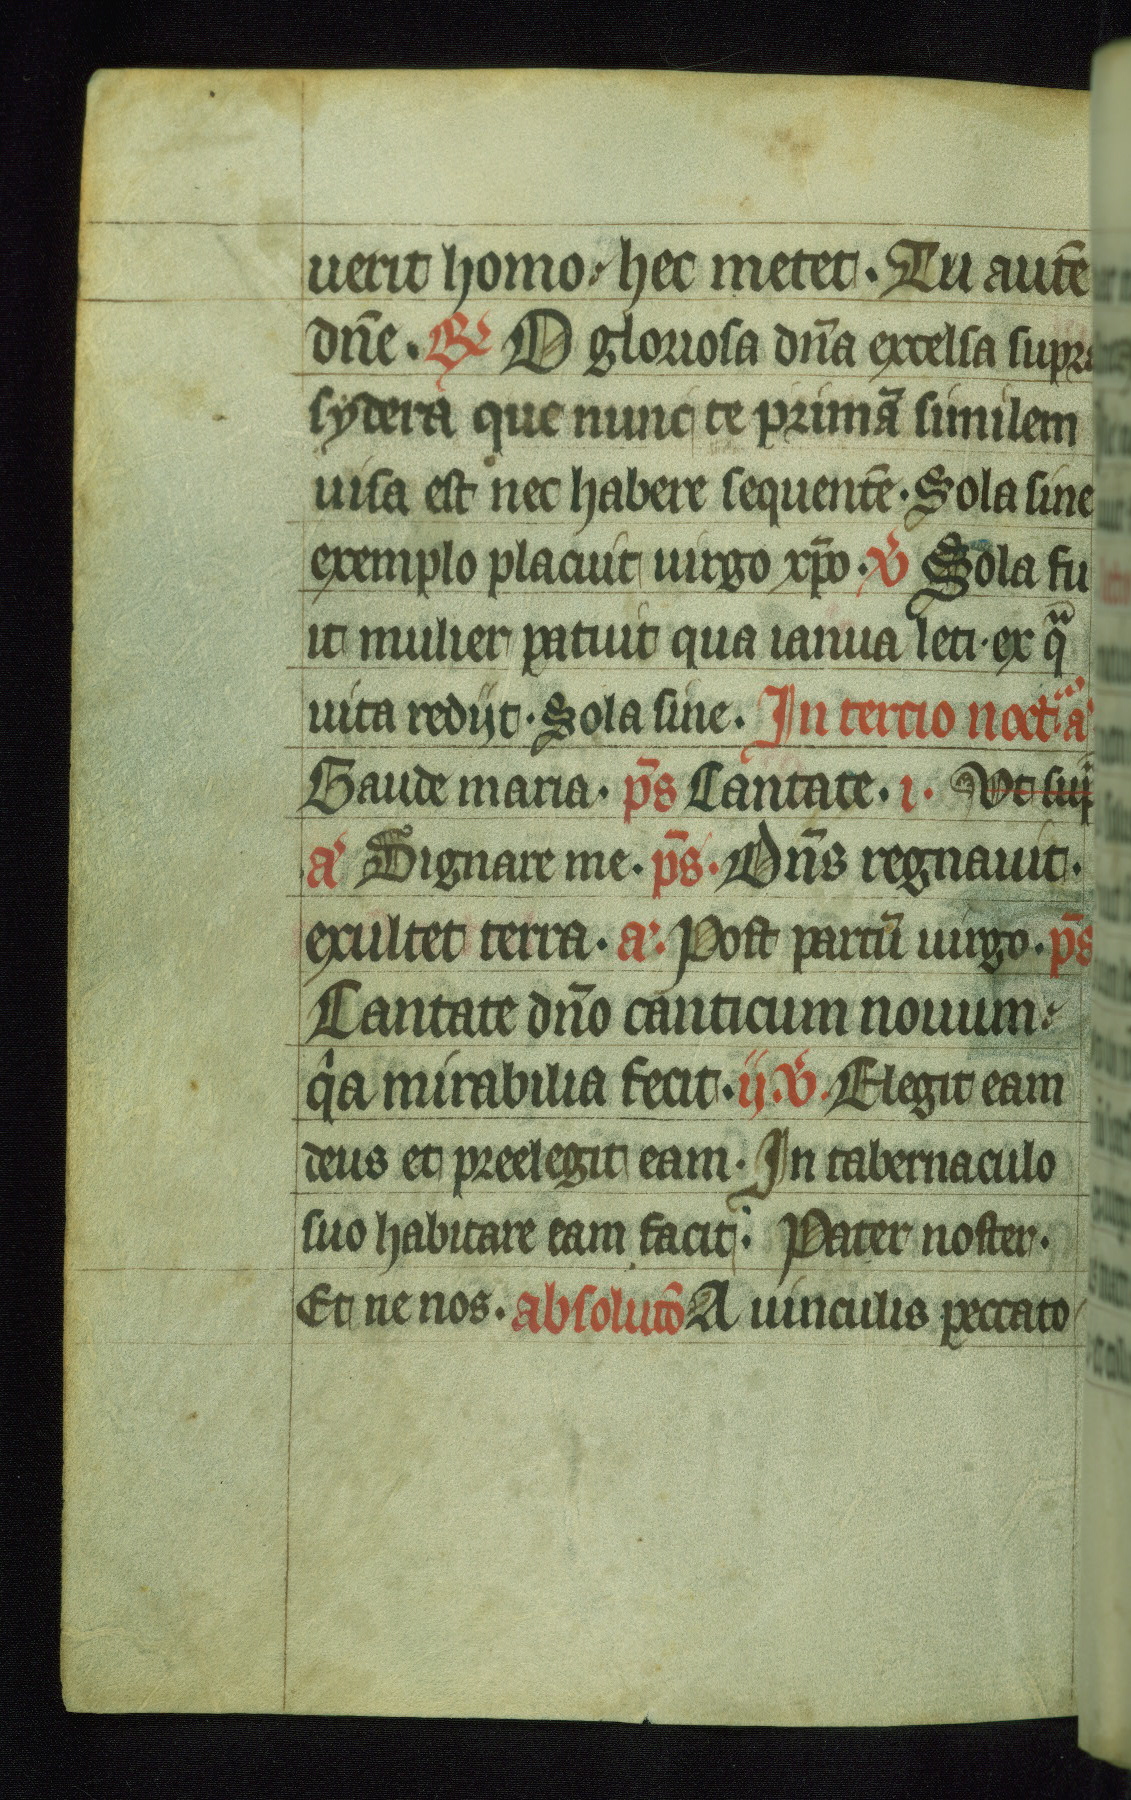 uerit homo hec metet. Tu autē
dn̄e. R̸ O gloriosa dn̄a excelsa supra
sydera que nunc te primā similem
uisa est nec habere sequentē. Sola sine
exemplo placuit uirgo xp̄o. V̸ Sola fu
it mulier patuit qua ianua leti. ex qͣ
uita redijt. Sola sine. In tercio noct. a
Gaude maria. p̄s Cantate. i. Vt sup̄
a Dignare me. p̄s. Dn̄s regnauit.
exultet terra. a. Post partū uirgo. p̄s
Cantate dn̄o canticum nouum
qͥa mirabilia fecit. ij. V̸. Elegit eam
deus et preelegit eam. In tabernaculo
suo habitare eam facit. Pater noster.
Et ne nos. absolucō A uinculis peccato